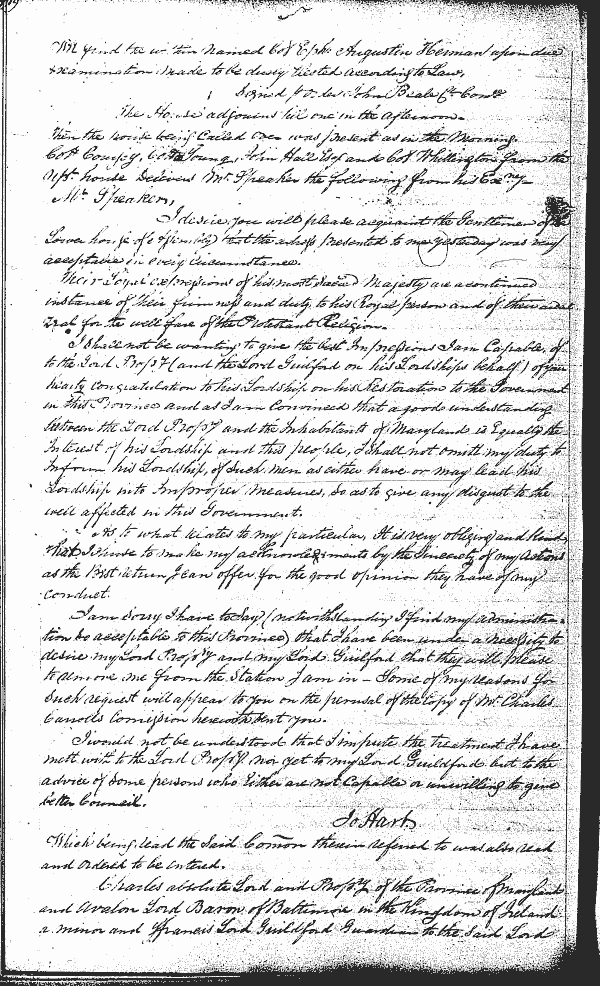 We find the within named Col Ephr Augustin Herman upon due
examination made to be duely Elected according to Law,
Signed pr order John Beale Clk Comee
The House adjourns til one in the afternoon.
Then the house being Called over was present as in the Morning.
Colo Young, John Hall Esqr and Col Whittington from the
Upr house Delivers Mr Speaker the following from his Excny
Mr Speaker,
I desire you will please acquaint the Gentlemen of the
Lower house of Assembly that the adress Presented to me yesterday was very
acceptable in every Circumstance.
Their Loyal expressions of his most Sacred Majesty are a continued
instance of their firmness and duty to his Royal person and of their
Zeal for the well fare of the Protestant Religion.
I Shall not be wanting to give the best Impressions I am Capable, of
to the Lord Propry (and the Lord Guilford on his Lordships behalf) of your
hearty congratulation to his Lordship on his Restoration to the Government
in this Province and as I am Convinced that a good understanding
between the Lord Propry and the Inhabitants of Maryland is Equally the
Interest of his Lordship and this people, I shall not omitt my duty to
Inform his Lordship, of Such men as either have or may lead his
Lordship into Improper Measures, So as to give any disgust to the
well affected in this Government.
As to what relates to my particular, It is very obliging and
that I chuse to make my acknowledgments by the Sincerity of my Actions
as the Best return I can offer, for the good opinion they have of my
conduct.
I am Sorry I have to Say (notwithstanding I find my administra-
tion be acceptable to this Province) that I have been under a necessity to
desire my Lord Propry and my Lord Guilford that they will please
to remove me from the Station I am in - Some of my reasons for
Such request will appear to you on the perusal of the Copy of Mr Charles
Carrolls Comission herewith sent you.
I would not be understood that I impute the treatment I have
mett with to the Lord Propry nor yet to my Lord Guildford but to the
advice of Some persons who Either are not Capable or unwilling to give
better Council.
Jo Hart
Which being read the Said Comon therein referred to was also read
and ordered to be Entered.
Charles absolute Lord and Propry of the Province of Maryland
and Avalon Lord Baron of Baltimore in the Kingdom of Ireland
a minor and Francis Lord Guildford Guardian to the Said Lord